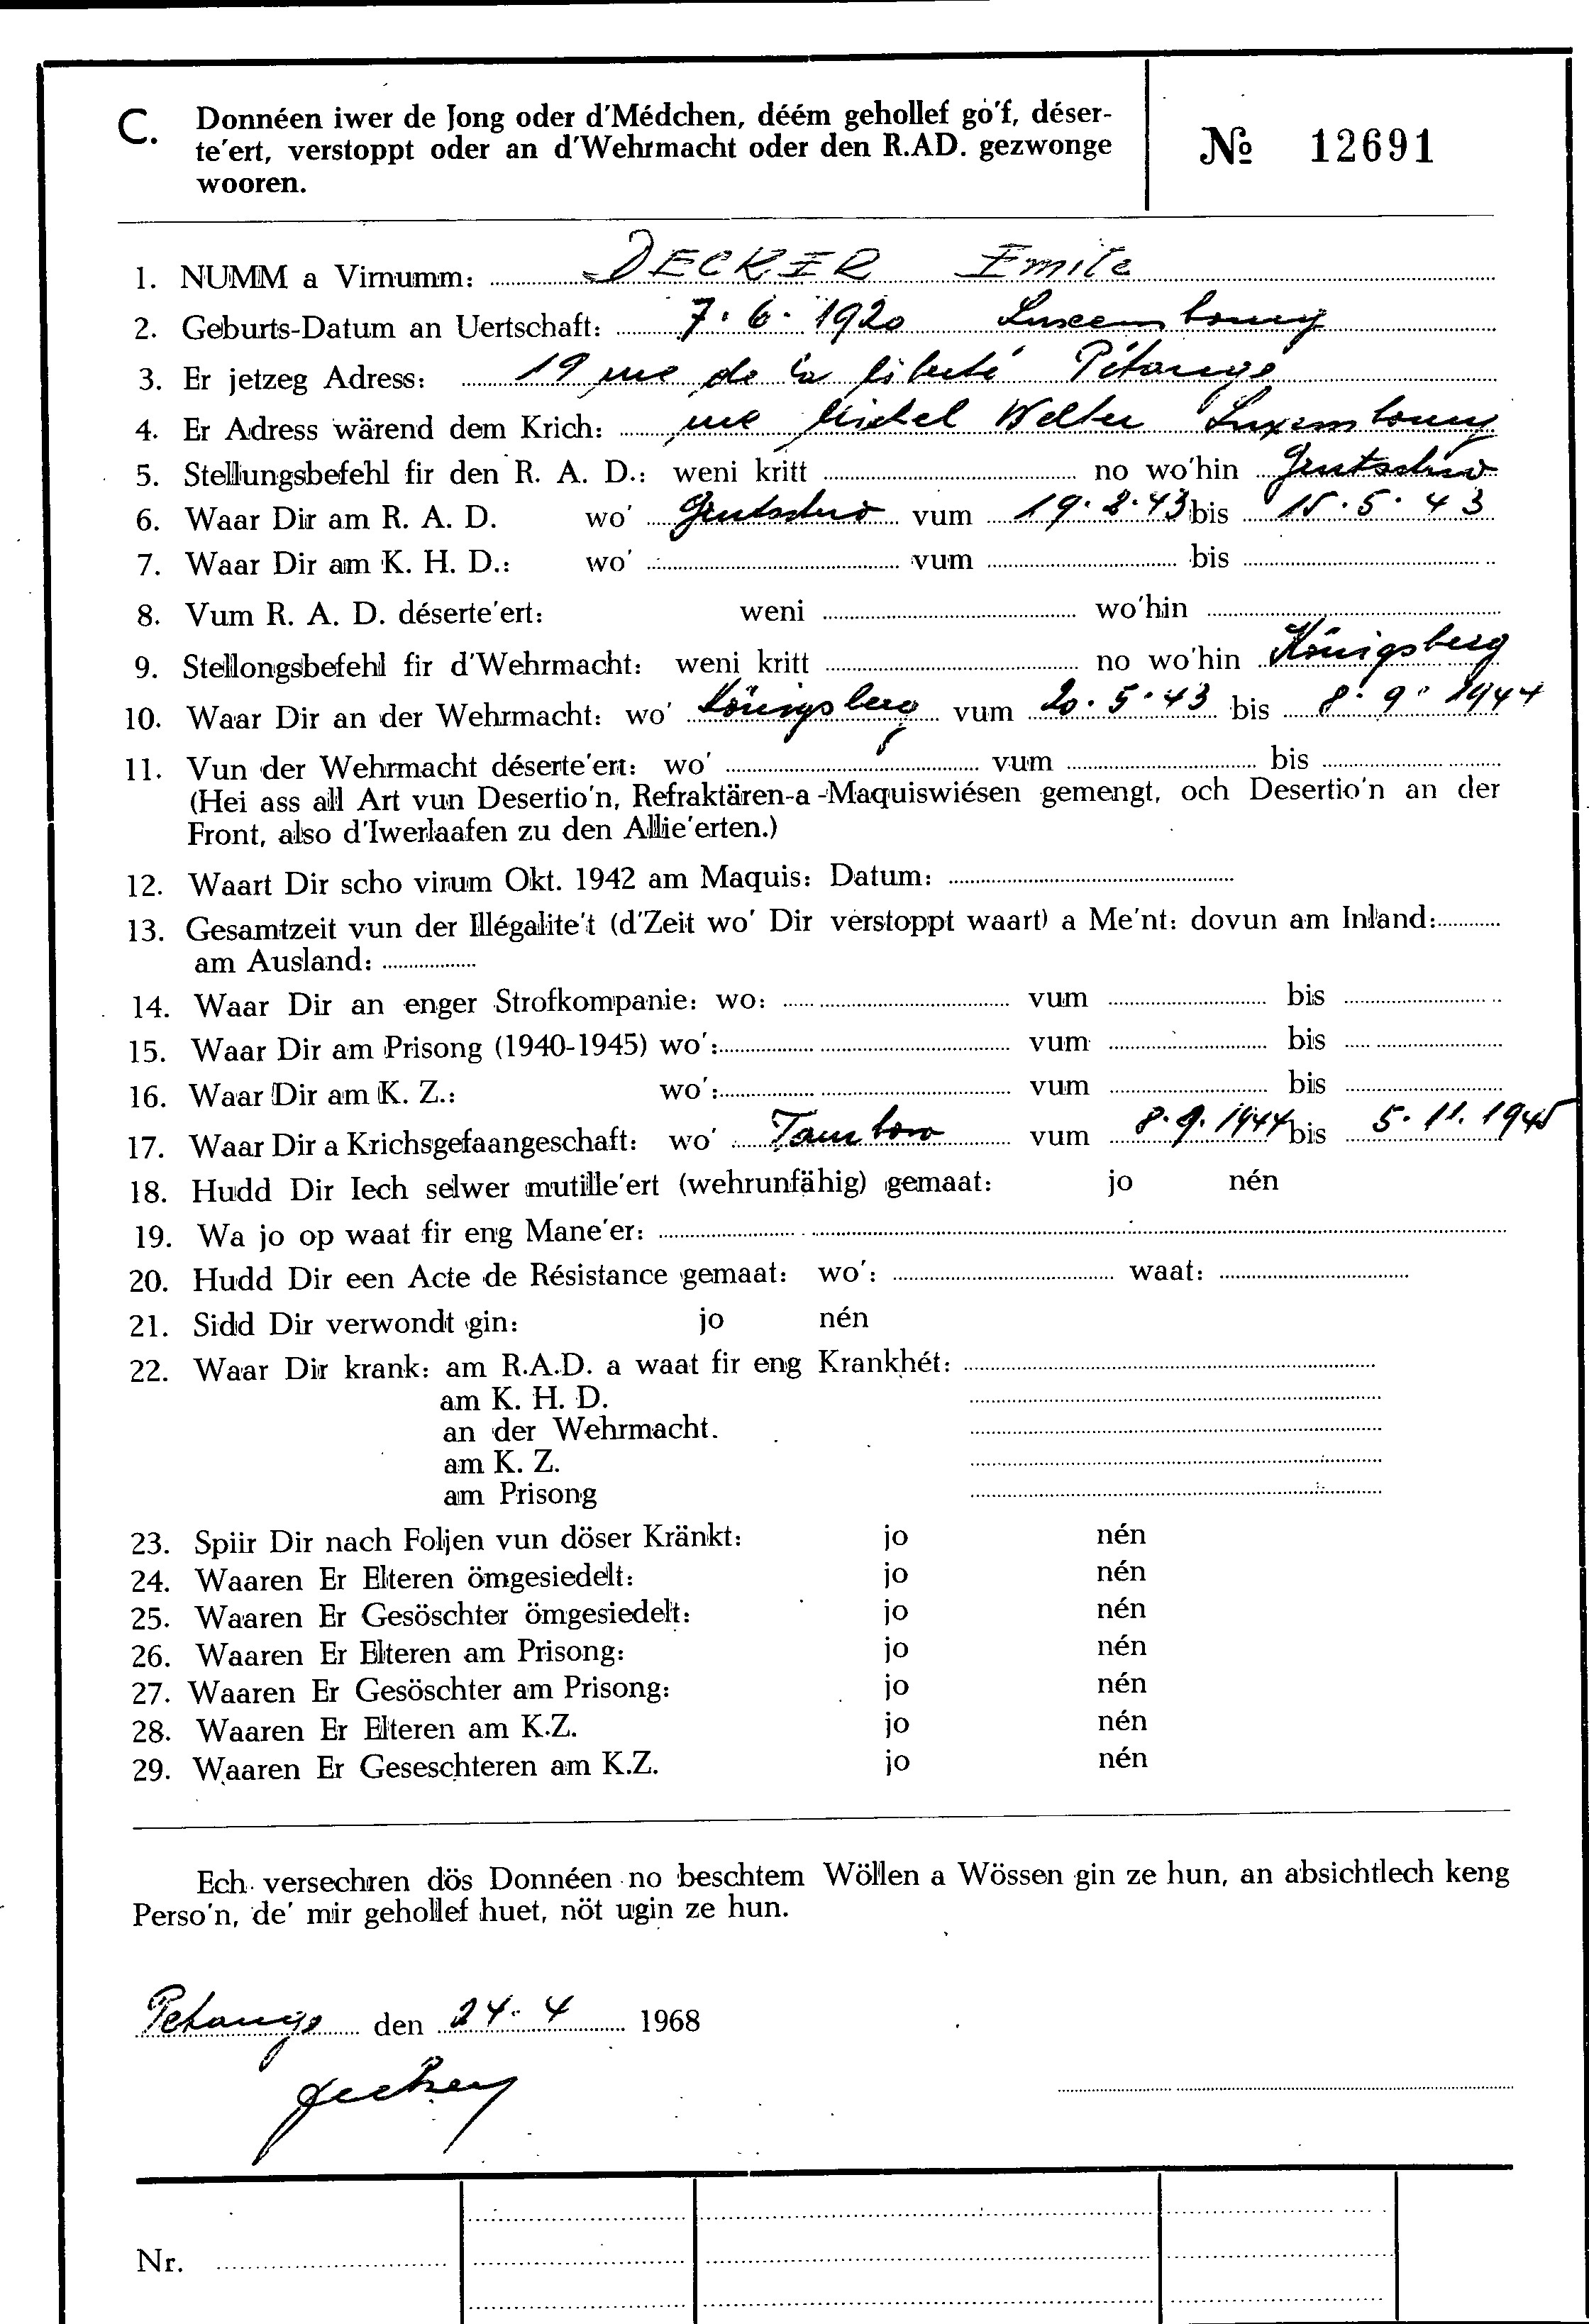 C. Donnéen iwer de Jong oder d'Médchen, déém gehollef go'f, déser-
te'ert, verstoppt oder an d'Wehrmacht oder den R.AD. gezwonge
wooren.
№ 12691
1. NUMM a Virnumm: DECKER Emile
2. Geburts-Datum an Uertschaft: 7.6.1920 Luxembourg
3. Er jetzeg Adress: 19 rue de la liberté Pétange
4. Er Adress wärend dem Krich: rue Michel Welter Luxembourg
5. Stellungsbefehl fir den R. A. D.: weni kritt no wo'hin
6. Waar Dir am R. A. D. wo' vum 19.2.43 bis 15.5.43
7. Waar Dir am K. H. D.: wo' vum bis
8. Vum R. A. D. déserte'ert: weni wo'hin
9. Stellongsbefehl fir d'Wehrmacht: weni kritt no wo'hin Königsberg
10. Waar Dir an der Wehrmacht: wo' Königsberg vum 20.5.43 bis 8.9.1944
11. Vun der Wehrmacht déserte'ert: wo' vum bis
(Hei ass all Art vun Desertio'n, Refraktären-a-Maquiswiésen gemengt, och Desertio'n an der
Front, also d'Iwerlaafen zu den Allie'erten.)
12. Waart Dir scho virum Okt. 1942 am Maquis: Datum:
13. Gesamtzeit vun der Illégalite't (d'Zeit wo' Dir verstoppt waart) a Me'nt: dovun am Inland:
am Ausland:
14. Waar Dir an enger Strofkompanie: wo: vum bis
15. Waar Dir am Prisong (1940-1945) wo': vum bis
16. Waar Dir am K. Z.: wo': vum bis
17. Waar Dir a Krichsgefaangeschaft: wo' Tambow vum 8.9.1944 bis 5.11.1945
18. Hudd Dir Iech selwer mutille'ert (wehrunfähig) gemaat: jo nén
19. Wa jo op waat fir eng Mane'er:
20. Hudd Dir een Acte de Résistance gemaat: wo': waat:
21. Sidd Dir verwondt gin: jo nén
22. Waar Dir krank: am R.A.D. a waat fir eng Krankhét:
am K. H. D.
an der Wehrmacht.
am K. Z.
am Prisong
23. Spiir Dir nach Foljen vun döser Kränkt: jo nén
24. Waaren Er Elteren ömgesiedelt: jo nén
25. Waaren Er Gesöschter ömgesiedelt: jo nén
26. Waaren Er Elteren am Prisong: jo nén
27. Waaren Er Gesöschter am Prisong: jo nén
28. Waaren Er Elteren am K.Z. jo nén
29. Waaren Er Geseschteren am K.Z. jo nén
Ech versechren dös Donnéen no beschtem Wöllen a Wössen gin ze hun, an absichtlech keng
Perso'n, de' mir gehollef huet, nöt ugin ze hun.
Petange den 24.4 1968
Decker
Nr.